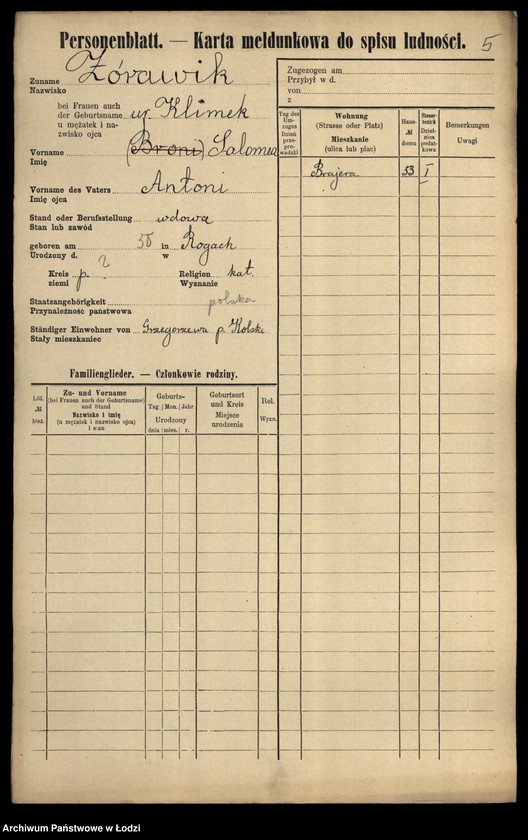 Personenblatt. — Karta meldunkowa do spisu ludności. 5
Zuname Żórawik
Nazwisko
bei Frauen auch
der Geburtsname ur. Klimek
u mężatek i na-
zwisko ojca
Vorname (Broni) Salomea
Imię
Vorname des Vaters Antoni
Imię ojca
Stand oder Berufsstellung wdowa
Stan lub zawód
geboren am 50 in Rogach
Urodzony d. w
Kreis p. ? Religion kat.
ziemi Wyznanie
Staatsangehörigkeit polska
Przynależność państwowa
Ständiger Einwohner von Grzegorzewa p. Kolski
Stały mieszkaniec
Familienglieder. — Członkowie rodziny.
Lfd. № bież.
Zu- und Vorname
(bei Frauen auch der Geburtsname)
und Stand
Nazwisko i imię
(u mężatek i nazwisko ojca)
i stan
Geburts-
Tag | Mon. | Jahr
Urodzony
dnia | mies. | r.
Geburtsort
und Kreis
Miejsce
urodzenia
Rel.
Wyzn.
Zugezogen am
Przybył w d.
von
z
Tag des
Um-
zuges
Dzień
prze-
prowadzki
Wohnung
(Strasse oder Platz)
Mieszkanie
(ulica lub plac)
Haus-
№
domu
Steuer-
bezirk
Dziel-
nica
podat-
kowa
Bemerkungen
Uwagi
Brajera 53 I
Archiwum Państwowe w Łodzi